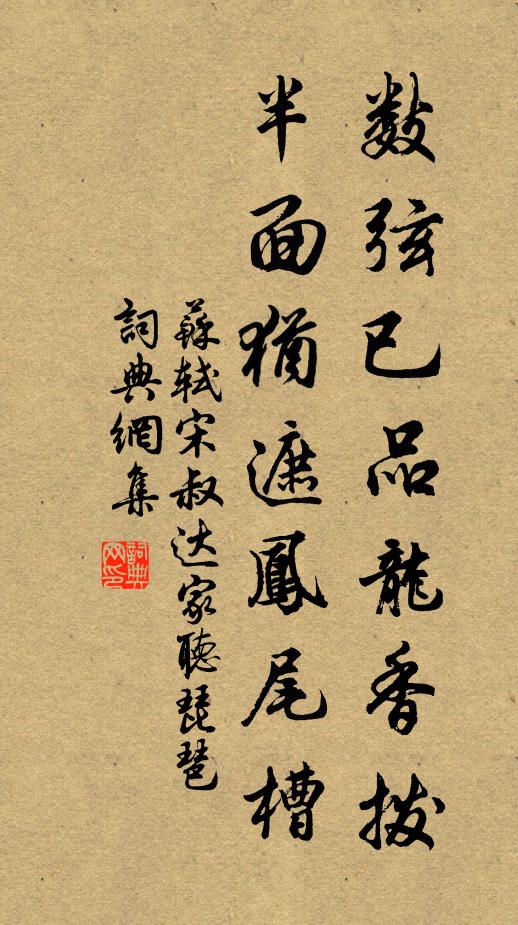 数弦已品龍香撥
半面猶遮鳳尾槽
蘇軾宋叔达家聽琵琶
詞典網集
詞典網印